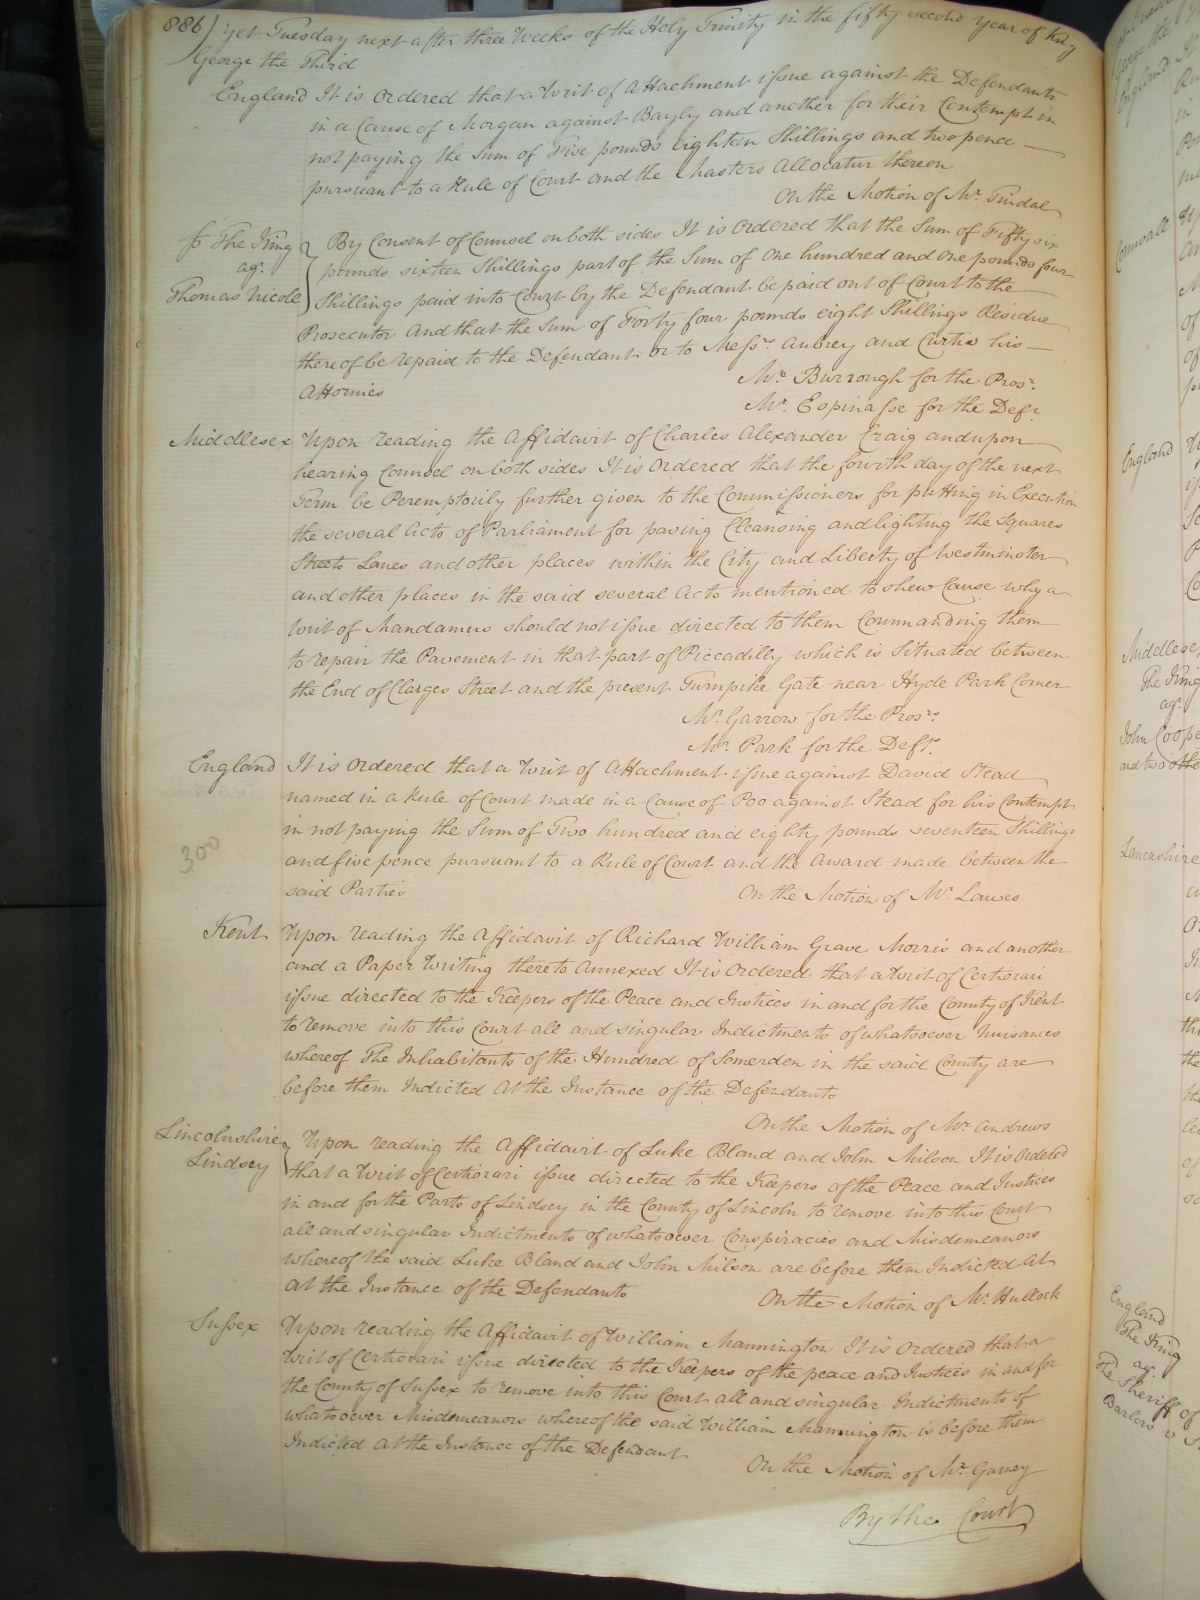 886/ yet Tuesday next after three Weeks of the Holy Trinity in the fifty second year of King
George the Third
England It is ordered that a Writ of Attachment issue against the Defendants
in a Cause of Morgan against Bayly and another for their Contempt in
not paying the Sum of Five pounds eighteen Shillings and two pence
pursuant to a Rule of Court and the Masters Allocatur thereon
On the Motion of Mr. Tindal
The King
agt.
Thomas Nicole
By Consent of Counsel on both sides It is ordered that the Sum of Fifty six
pounds sixteen Shillings part of the Sum of One hundred and One pounds four
Shillings paid into Court by the Defendant be paid out of Court to the
Prosecutor And that the Sum of Forty four pounds eight Shillings Residue
thereof be repaid to the Defendant or to Messrs. Aubrey and Curtis his
Attornies
Mr. Burrough for the Prosr.
Mr. Espinasse for the Deft.
Middlesex Upon reading the Affidavit of Charles Alexander Craig and upon
hearing Counsel on both sides It is Ordered that the fourth day of the next
Term be Peremptorily further given to the Commissioners for putting in Execution
the several Acts of Parliament for paving Cleansing and lighting the Squares
Streets Lanes and other places within the City and Liberty of Westminster
and other places in the said several Acts mentioned to shew Cause why a
Writ of Mandamus should not issue directed to them Commanding them
to repair the Pavement in that part of Piccadilly which is Situated between
the End of Clarges Street and the present Turnpike Gate near Hyde Park Corner
Mr. Garrow for the Prosrs.
Mr. Park for the Defts.
England It is ordered that a Writ of Attachment issue against David Stead
named in a Rule of Court made in a Cause of Poo against Stead for his Contempt
in not paying the Sum of Two hundred and eighty pounds seventeen Shillings
300
and five pence pursuant to a Rule of Court and the Award made between the
said Parties On the Motion of Mr. Lawes
Kent Upon reading the Affidavit of Richard William Grave Morris and another
and a Paper Writing thereto Annexed It is Ordered that a Writ of Certiorari
issue directed to the Keepers of the Peace and Justices in and for the County of Kent
to remove into this Court all and singular Indictments of whatsoever Nuisances
whereof The Inhabitants of the Hundred of Somerden in the said County are
before them Indicted At the Instance of the Defendants
On the Motion of Mr. Andrews
Lincolnshire
Lindsey
Upon reading the Affidavit of Luke Bland and John Milson It is Ordered
that a Writ of Certiorari issue directed to the Keepers of the Peace and Justices
in and for the Parts of Lindsey in the County of Lincoln to remove into this Court
all and singular Indictments of whatsoever Conspiracies and Misdemeanors
whereof the said Luke Bland and John Milson are before them Indicted At
At the Instance of the Defendants On the Motion of Mr. Hullock
Sussex Upon reading the Affidavit of William Mannington It is Ordered that a
Writ of Certiorari issue directed to the Keepers of the peace and Justices in and for
the County of Sussex to remove into this Court all and singular Indictments of
whatsoever Misdemeanors whereof the said William Mannington is before them
Indicted At the Instance of the Defendant
On the Motion of Mr. Gurney
By the Court
England
Cornwall
England
Middlesex
The King
agt.
John Coope
and two othe
Lancashire
England
The King
agt.
The Sheriff of
Barlow v